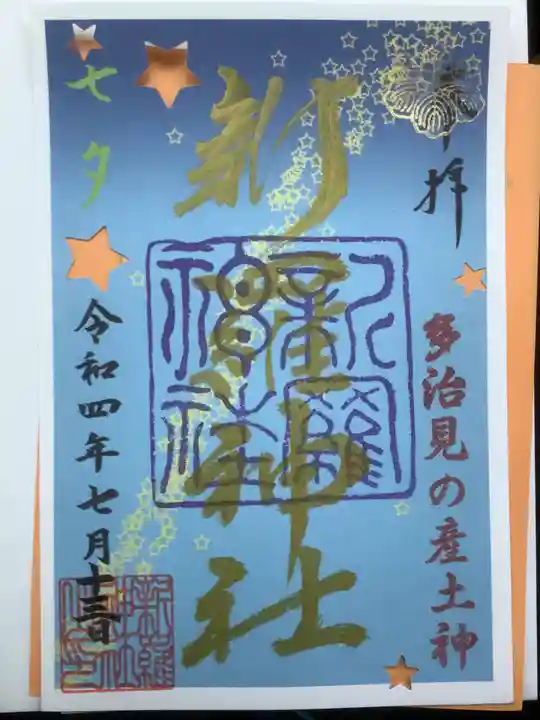 奉拝
多治見の産土神
新羅神社
新羅神社
七夕
令和四年七月十三日